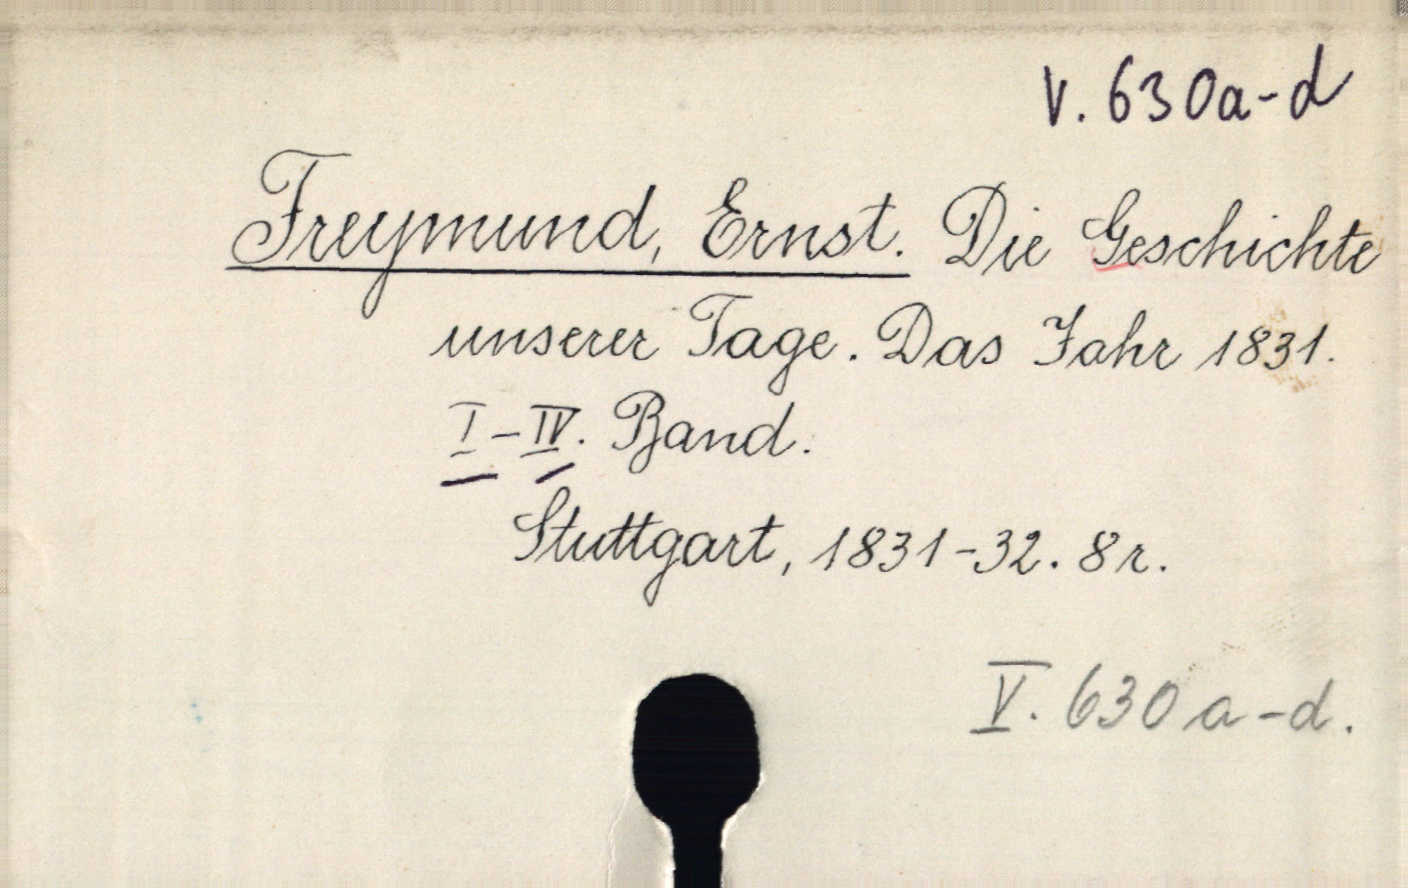 V. 630a-d
Freymund, Ernst. Die Geschichte
unserer Tage. Das Jahr 1831.
I-IV. Band.
Stuttgart, 1831-32. 8r.
V. 630 a-d.